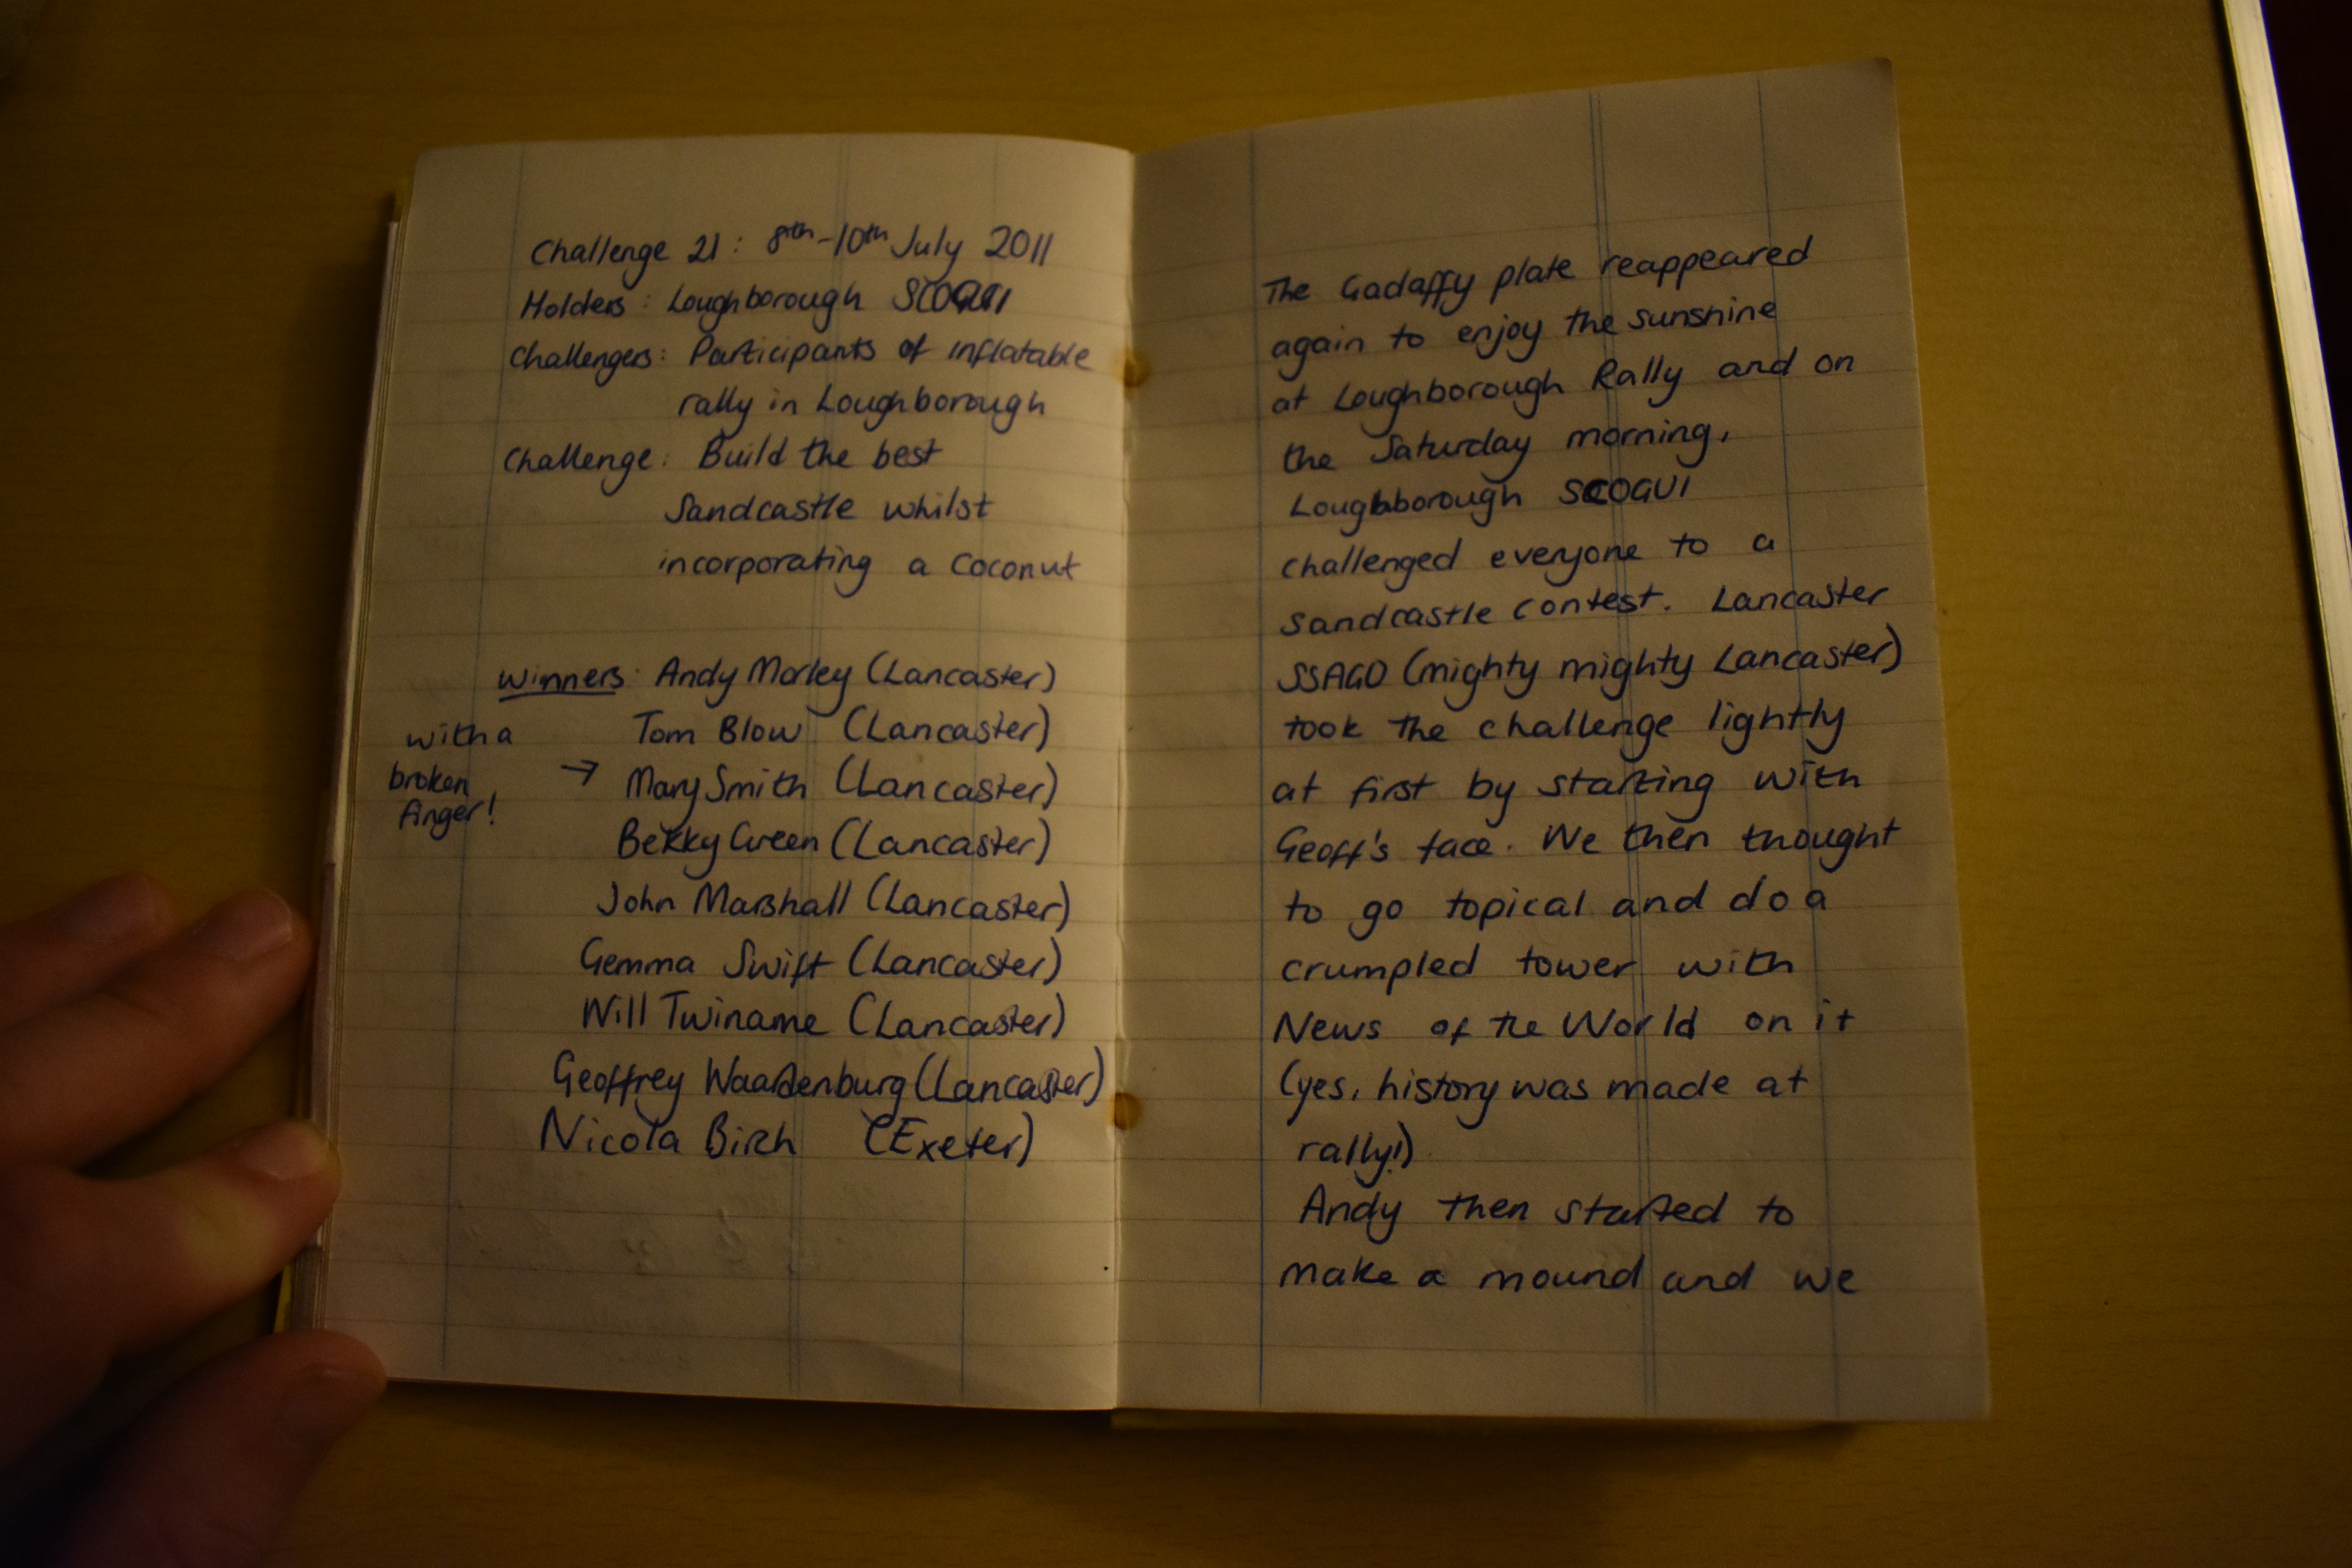 Challenge 21: 8th-10th July 2011
Holders: Loughborough SCOGUI
Challengers: Participants of inflatable
rally in Loughborough
Challenge: Build the best
Sandcastle whilst
incorporating a coconut
Winners: Andy Morley (Lancaster)
Tom Blow (Lancaster)
with a broken finger! → Mary Smith (Lancaster)
Bekky Green (Lancaster)
John Marshall (Lancaster)
Gemma Swift (Lancaster)
Will Twiname (Lancaster)
Geoffrey Waardenburg (Lancaster)
Nicola Birch (Exeter)
The Gadaffy plate reappeared
again to enjoy the sunshine
at Loughborough Rally and on
the Saturday morning,
Loughborough SCOGUI
challenged everyone to a
sandcastle contest. Lancaster
SSAGO (mighty mighty Lancaster)
took the challenge lightly
at first by starting with
Geoff's face. We then thought
to go topical and do a
crumpled tower with
News of the World on it
(yes, history was made at
rally!)
Andy then started to
make a mound and we